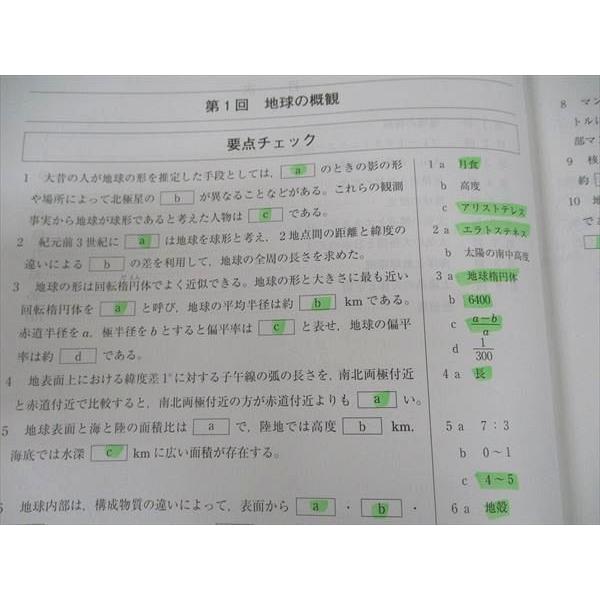 第1回　地球の概観
要点チェック
1　大昔の人が地球の形を推定した手段としては，[a]のときの影の形
や場所によって北極星の[b]が異なることなどがある。これらの観測
事実から地球が球形であると考えた人物は[c]である。
2　紀元前3世紀に[a]は地球を球形と考え，2地点間の距離と緯度の
違いによる[b]の差を利用して，地球の全周の長さを求めた。
3　地球の形は回転楕円体でよく近似できる。地球の形と大きさに最も近い
回転楕円体を[a]と呼び，地球の平均半径は約[b]kmである。
赤道半径をa，極半径をbとすると偏平率は[c]と表せ，地球の偏平
率は約[d]である。
4　地表面上における緯度差1°に対する子午線の弧の長さを，南北両極付近
と赤道付近で比較すると，南北両極付近の方が赤道付近よりも[a]い。
5　地球表面と海と陸の面積比は[a]で，陸地では高度[b]km，
海底では水深[c]kmに広い面積が存在する。
地球内部は，構成物質の違いによって，表面から[a]・[b]・
1 a　月食
b　高度
c　アリストテレス
2 a　エラトステネス
b　太陽の南中高度
3 a　地球楕円体
b　6400
c　a－b/a
d　1/300
4 a　長
5 a　7：3
b　0～1
c　4～5
6 a　地殻
8　マン
トルに
部マン
9　核
約
10　地
であ